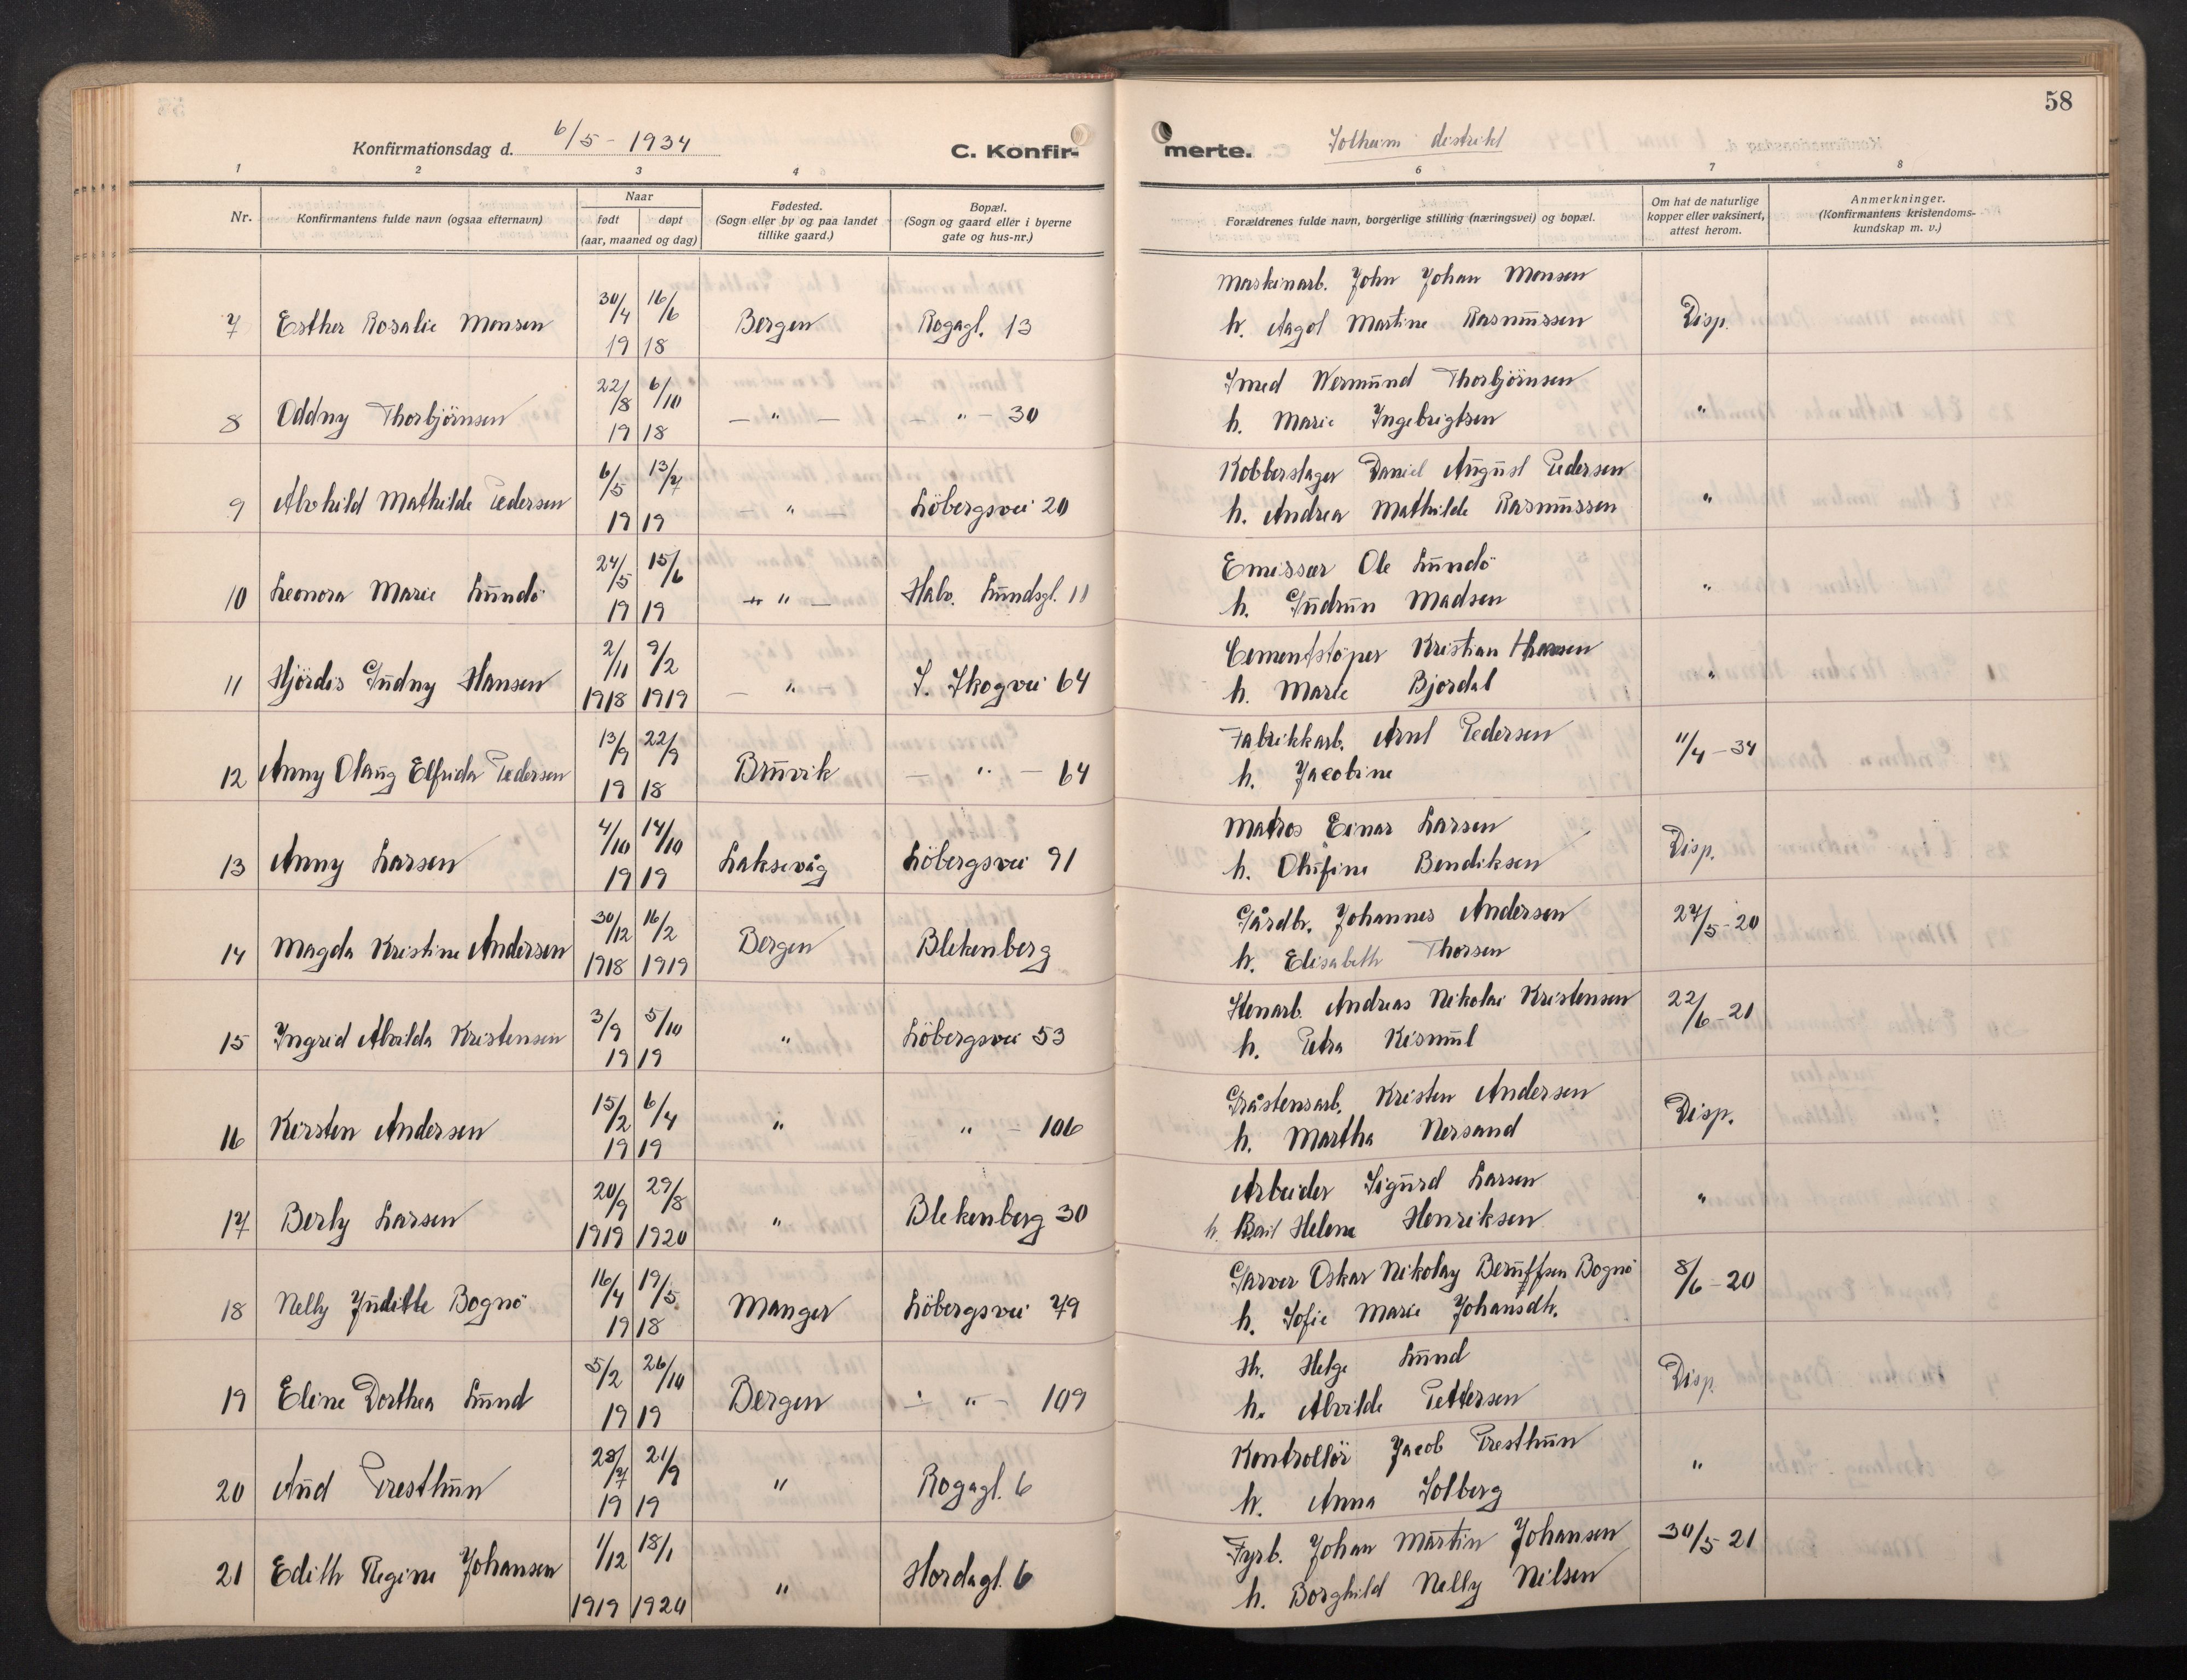 58
Konfirmationsdag d. 6/5 - 1934
C. Konfir-
merte.
Solheim distrikt
1 2 3 4 6 7 8
Nr.
Konfirmantens fulde navn (ogsaa efternavn)
Naar
født døpt
(aar, maaned og dag)
Fødested.
(Sogn eller by og paa landet
tillike gaard.)
Bopæl.
(Sogn og gaard eller i byerne
gate og hus-nr.)
Forældrenes fulde navn, borgerlige stilling (næringsvei) og bopæl.
Om hat de naturlige
kopper eller vaksinert,
attest herom.
Anmerkninger.
(Konfirmantens kristendoms-
kundskap m. v.)
30/4 16/6 Maskinarb. John Johan Monsen
7 Esther Rosalie Monsen Bergen Rogagt. 13 h. Aagot Martine Rasmussen Disp.
19 18
22/8 6/10 Smed Wermund Thorbjörnsen
8 Oddny Thorbjörnsen — " — — " — 30 h. Marie Ingebrigtsen "
19 18
6/5 13/7 Kobberslager Daniel August Pedersen
9 Alvhild Mathilde Pedersen — " — Löbergsvei 20 h. Andrea Mathilde Rasmussen "
19 19
24/5 15/6 Emissær Ole Lundö
10 Leonora Marie Lundö — " — Halv. Lundsgt. 11 h. Gudrun Madsen "
19 19
2/11 9/2 Cementstöper Kristian Hansen
11 Hjördis Gudny Hansen — " S. Skogvei 64 h. Marie Bjordal "
1918 1919
13/9 22/9 Fabrikkarb. Arnt Pedersen 11/4 - 34
12 Anny Olaug Elfrida Pedersen Bruvik — " — 64 h. Jacobine
19 18
4/10 14/10 Matros Einar Larsen
13 Anny Larsen Laksevåg Löbergsvei 91 h. Olufine Bendiksen Disp.
19 19
30/12 16/2 Gårdbr. Johannes Andersen 27/5 - 20
14 Magda Kristine Andersen Bergen Blekenberg h. Elisabeth Thorsen
1918 1919
3/9 5/10 Stenarb. Andreas Nikolai Kristensen 22/6 - 21
15 Ingrid Alvilda Kristensen " Löbergsvei 53 h. Petra Kismul
19 19
15/2 6/4 Gråstensarb. Kristen Andersen
16 Kirsten Andersen " — " — 106 h. Martha Nersand Disp.
19 19
20/9 29/8 Arbeider Sigurd Larsen
17 Berly Larsen " Blekenberg 30 h. Helene Henriksen "
1919 1920
16/4 19/5 Garver Oskar Nikolay Bognö 8/6 - 20
18 Nelly Juditte Bognö Manger Löbergsvei 79 h. Sofie Marie Johansdtr.
19 18
5/2 26/10 Helge Lund
19 Eline Dorthea Lund Bergen — " — 109 h. Alvilde Pettersen Disp.
19 19
28/7 21/9 Kontrollör Jacob Presthun
20 Aud Presthun " Rogagt. 6 h. Anna Solberg "
19 19
1/12 18/1 Fyrb. Johan Martin Johansen 30/5 - 21
21 Edith Regine Johansen " Hordagt. 6 h. Borghild Nelly Nilsen
1919 1920